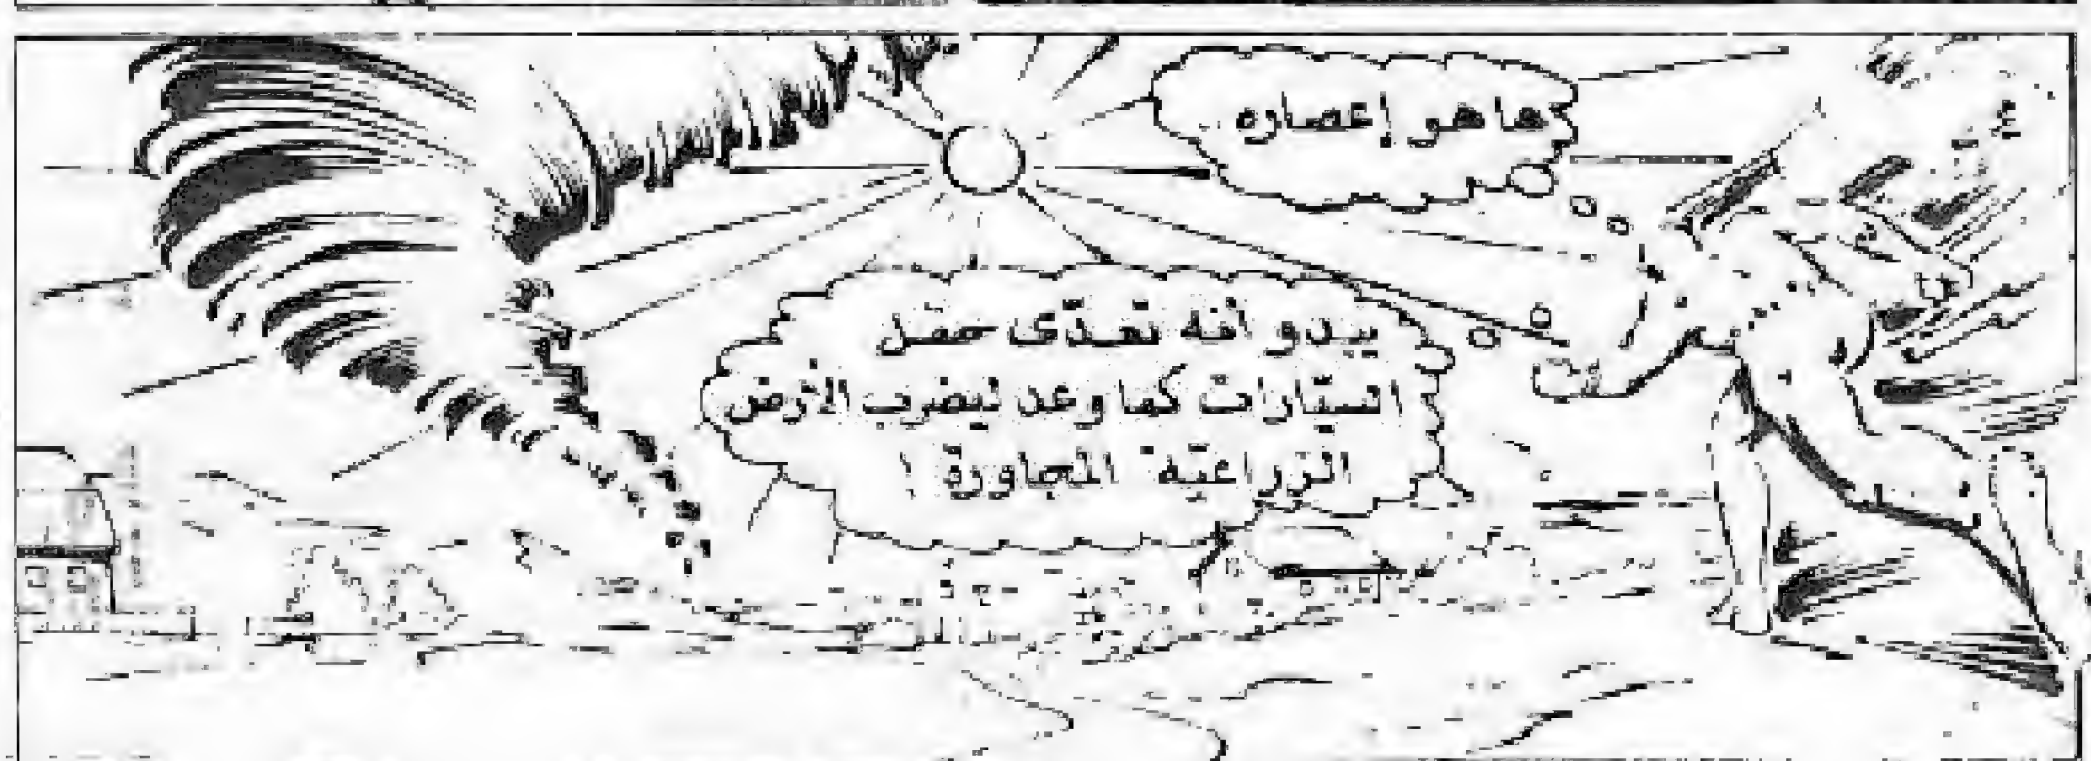 هاهو إعصاره ..
يبدو انه تعدّى حقل
السيّارات كما وعد ليضرب الأرض
الزراعيّة المجاورة !